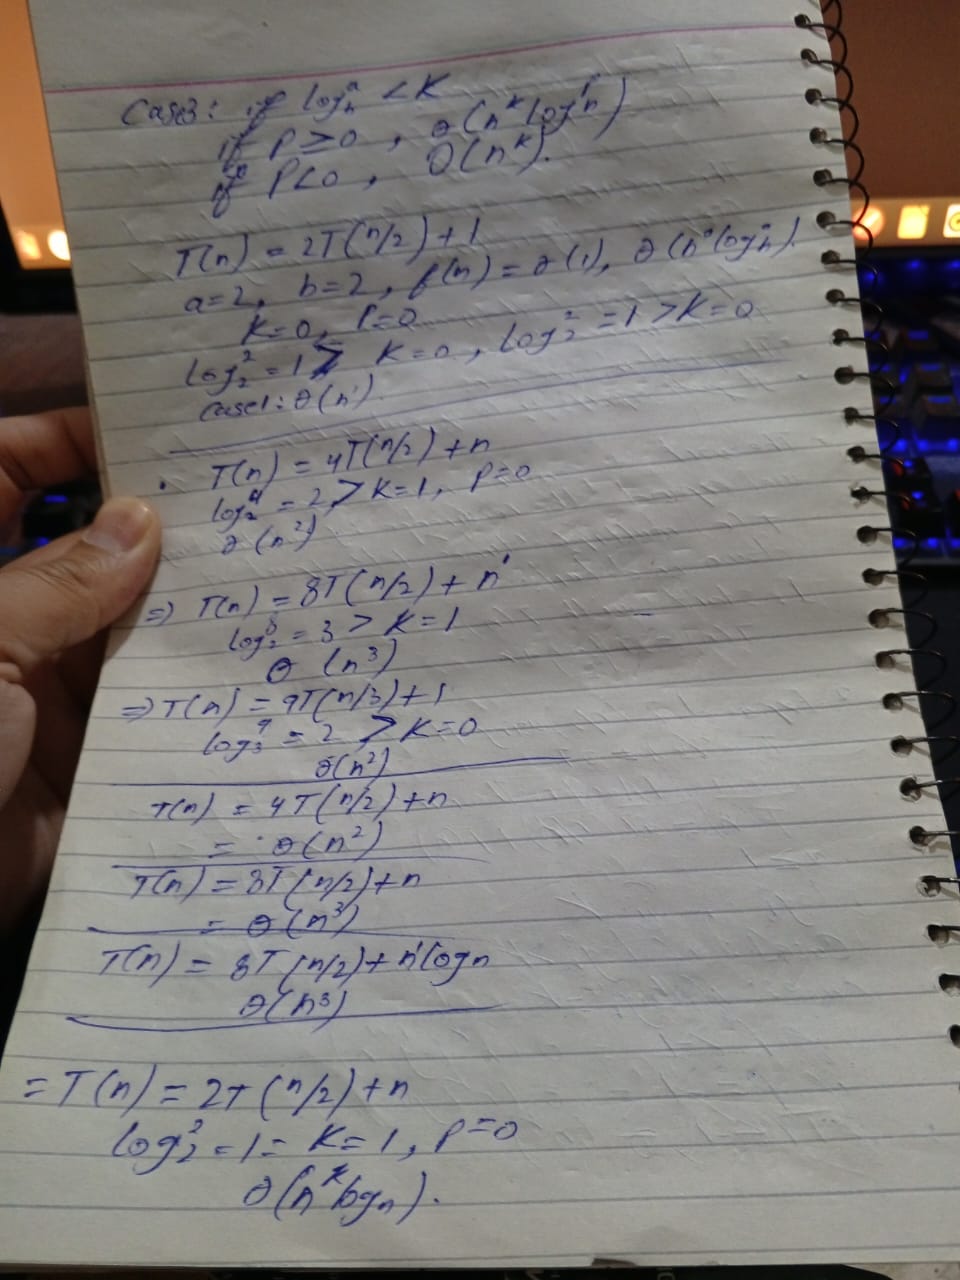 Case3: if logₙᵃ < K
if P ≥ 0 , θ(nᵏ logᵖn)
if P < 0 , O(nᵏ).
T(n) = 2T(n/2) + 1
a=2, b=2, f(n) = θ(1), θ(n⁰ log⁰n).
K=0, P=0
log₂² = 1 > K=0, log₂² = 1 > K=0
Case1: θ(n¹).
. T(n) = 4T(n/2) + n
log₂⁴ = 2 > K=1, P=0
θ(n²)
⇒ T(n) = 8T(n/2) + n¹
log₂⁸ = 3 > K=1
θ (n³)
⇒ T(n) = 9T(n/3) + 1
log₃⁹ = 2 > K=0
θ(n²)
T(n) = 4T(n/2) + n
= θ(n²)
T(n) = 8T(n/2) + n
= θ(n³)
T(n) = 8T(n/2) + n¹logn
θ(n³)
= T(n) = 2T(n/2) + n
log₂² = 1 = K=1, P=0
θ(nᵏ logn).